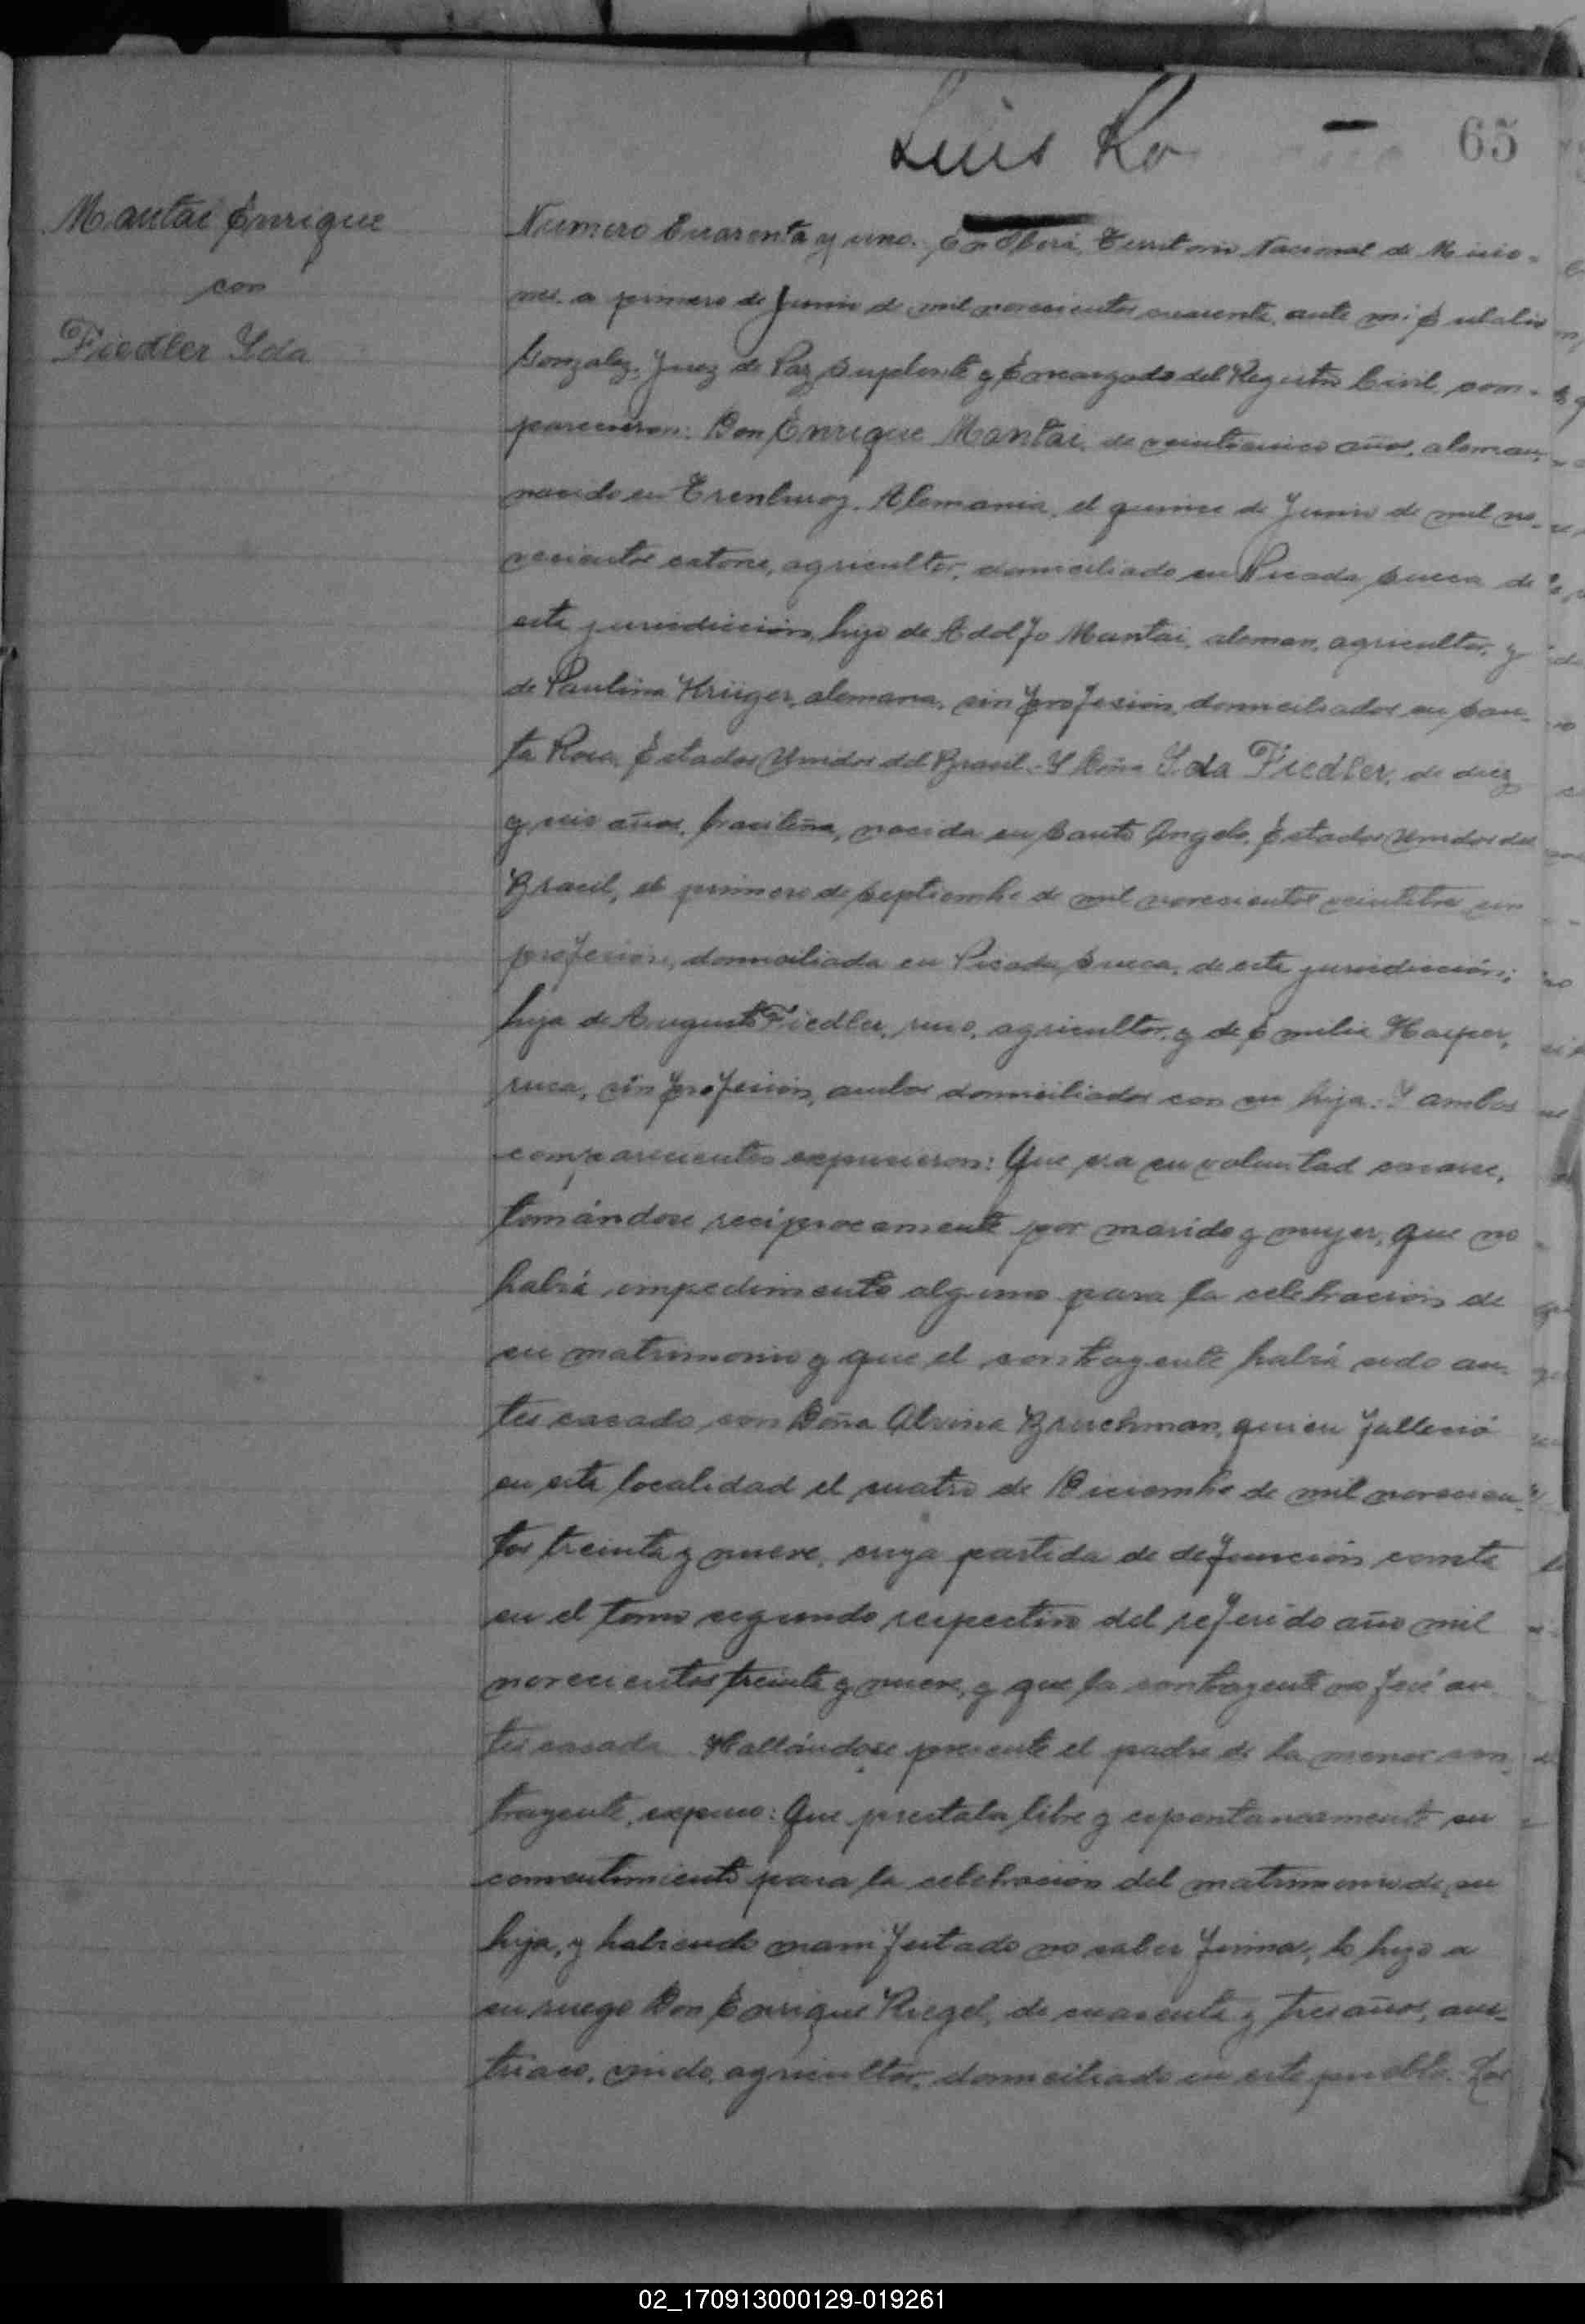 Luis Ro
65
Mantai Enrique
con
Fiedler Ida
Numero Cuarenta y uno. En Oberá, Territorio Nacional de Misio-
nes a primero de Junio de mil novecientos cuarenta, ante mi Eulalio
Gonzalez, Juez de Paz Suplente y Encargado del Registro Civil, com-
parecieron: Don Enrique Mantai, de veinticinco años, aleman,
nacido en Alemania, el quince de Junio de mil no-
vecientos catorce, agricultor, domiciliado en Picada Sueca de
esta jurisdicción, hijo de Adolfo Mantai, aleman, agricultor, y
de Paulina Krüger, alemana, sin profesión, domiciliados en San-
ta Rosa, Estados Unidos del Brasil. Y Doña Ida Fiedler, de diez
y seis años, brasileña, nacida en Santo Angelo, Estados Unidos del
Brasil, el primero de Septiembre de mil novecientos veintitres, sin
profesión, domiciliada en Picada Sueca, de esta jurisdicción;
hija de Augusto Fiedler, ruso, agricultor, y de Emilia
rusa, sin profesión, ambos domiciliados con su hija. Y ambos
comparecientes expusieron: Que era su voluntad casarse,
tomándose reciprocamente por marido y mujer, que no
había impedimento alguno para la celebración de
su matrimonio y que el contrayente había sido an-
tes casado con Doña Alvina Bruchman, quien falleció
en esta localidad el cuatro de Diciembre de mil novecien-
tos treinta y nueve, cuya partida de defunción consta
en el tomo segundo respectivo del referido año mil
novecientos treinta y nueve, y que la contrayente no fué an-
tes casada. Hallándose presente el padre de la menor con-
trayente, expuso: Que prestaba libre y espontaneamente su
consentimiento para la celebración del matrimonio de su
hija, y habiendo manifestado no saber firmar, lo hizo a
su ruego Don Enrique Riegel, de cuarenta y tres años, aus-
triaco, viudo, agricultor, domiciliado en este pueblo. Los
02_170913000129-019261